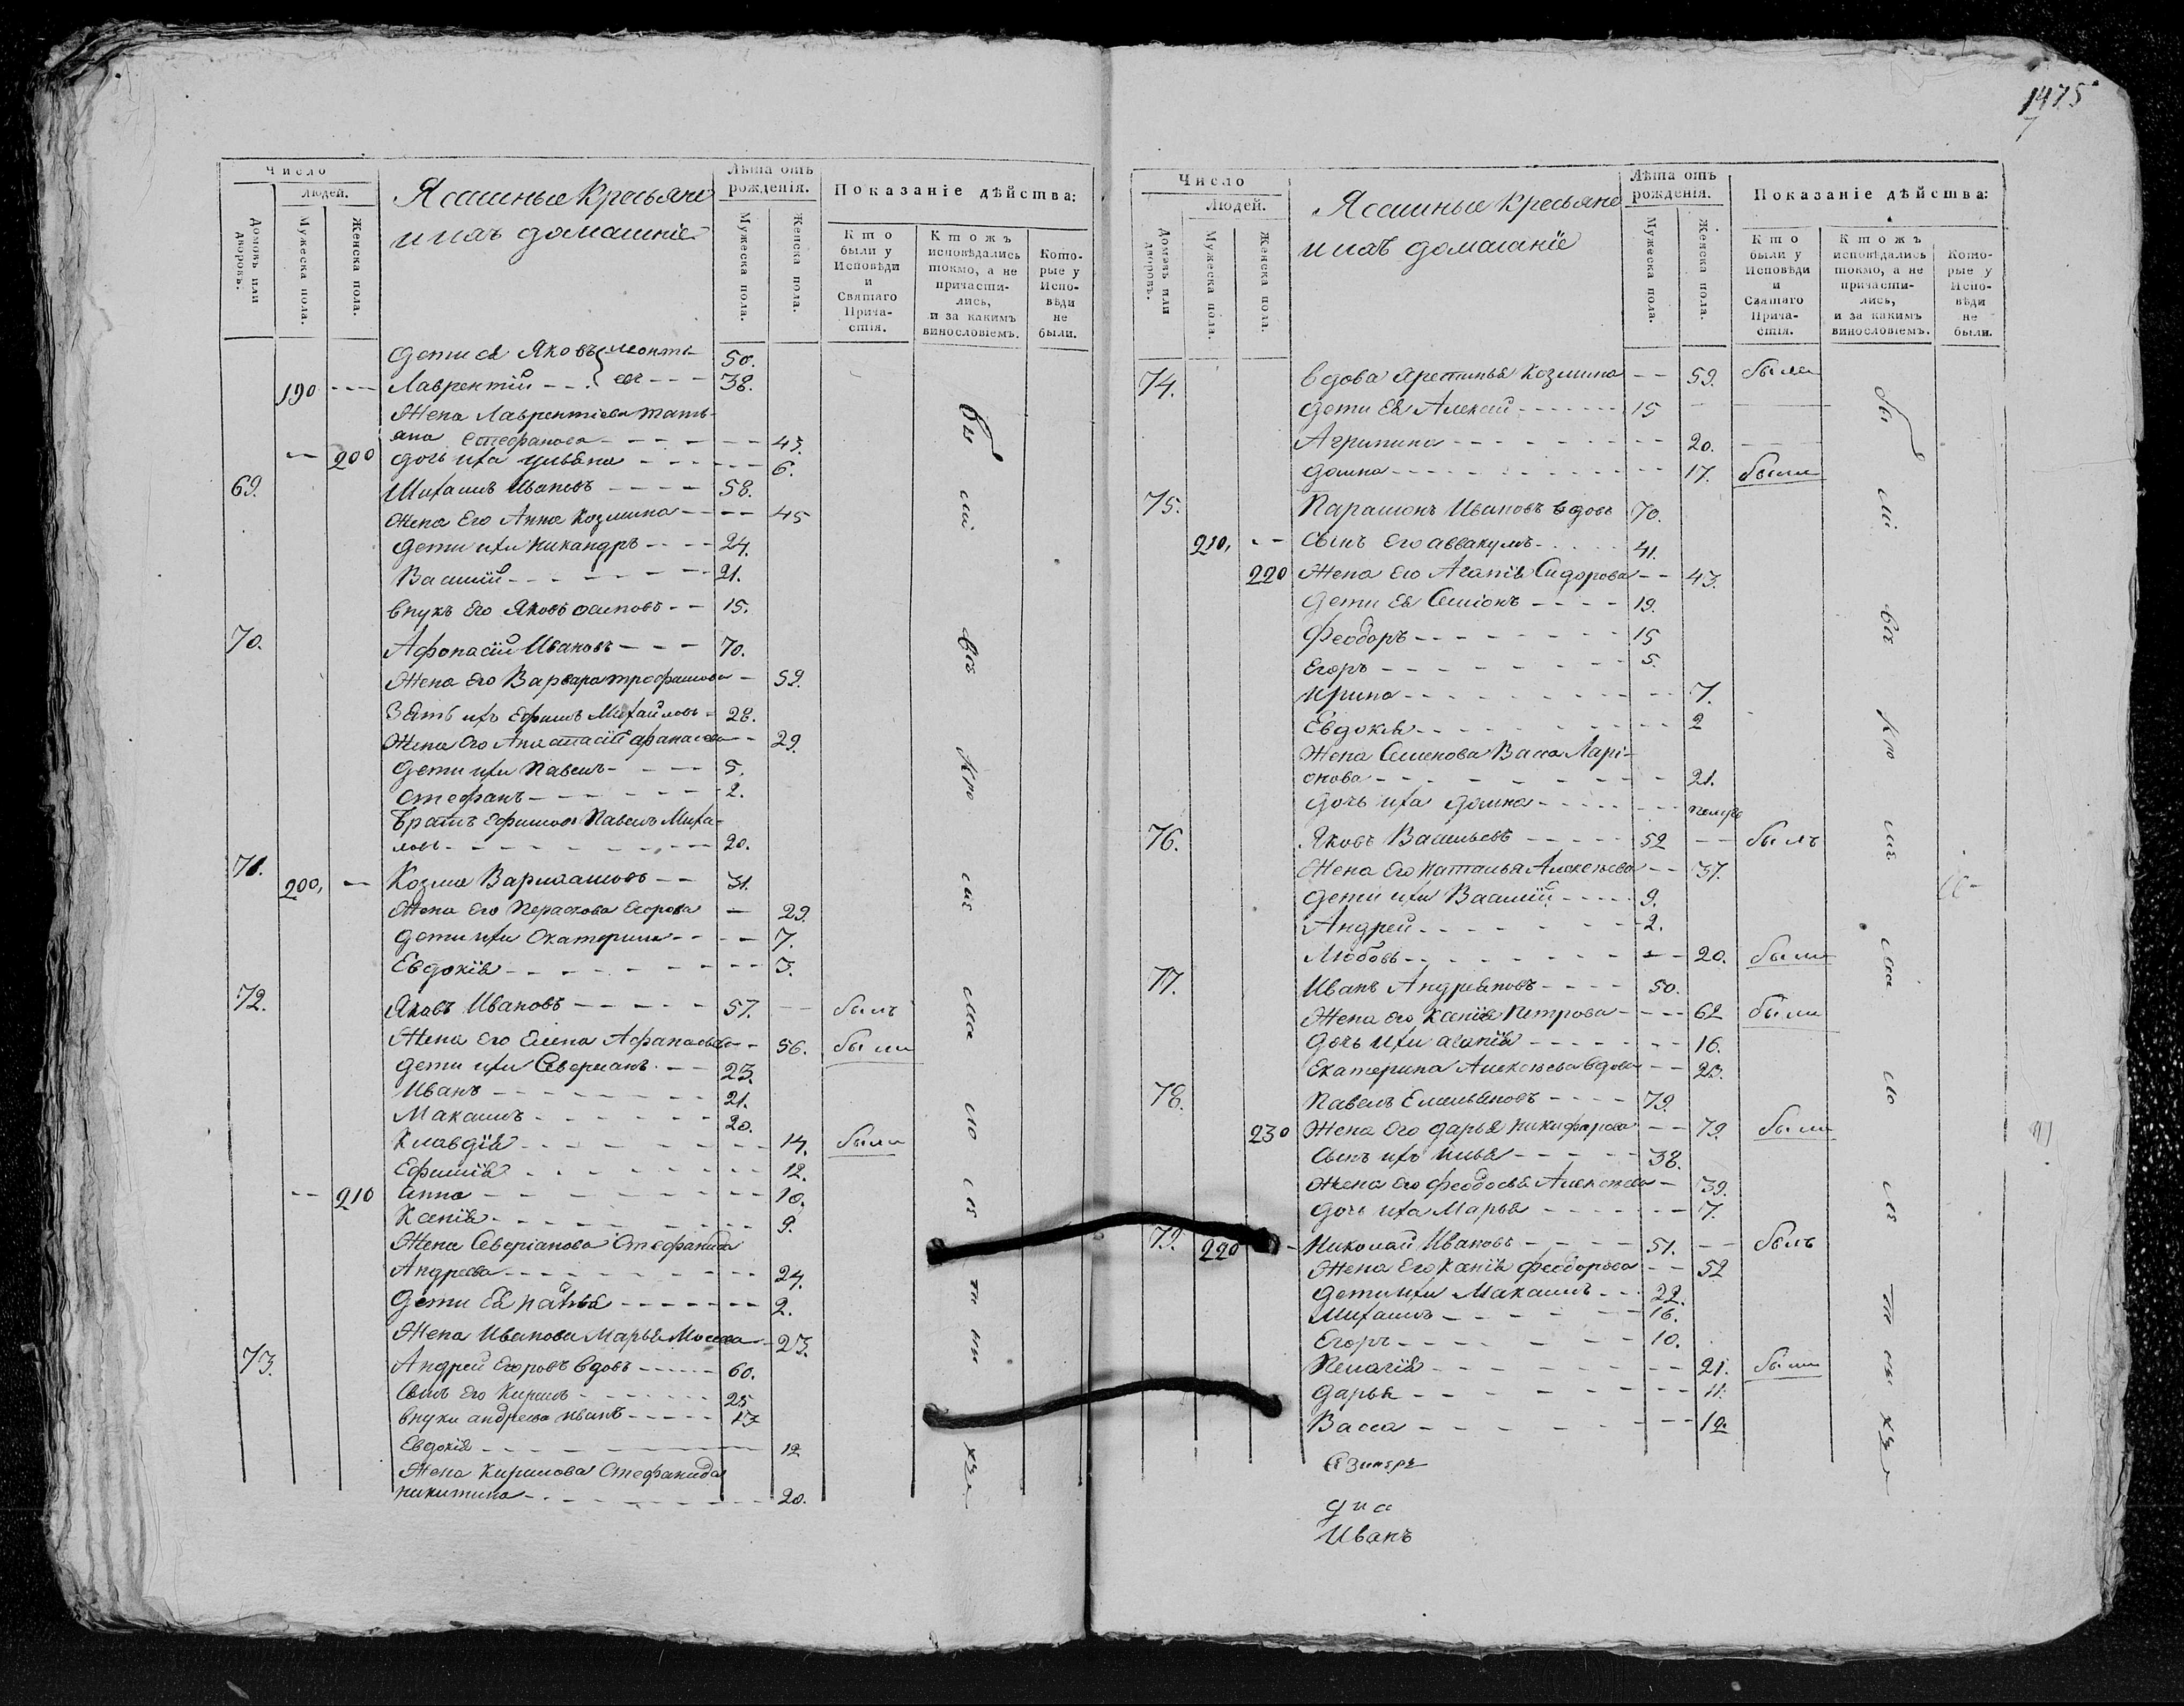 1475
Число
Людей.
Домовъ или дворовъ.
Мужеска пола.
Женска пола.
Ясашные Кресьяне
и ихъ домашніе
Лѣта отъ рожденія.
Мужеска пола.
Женска пола.
Показаніе дѣйства:
Кто были у Исповѣди и Святаго Прича-стія.
Ктожъ исповѣдались токмо, а не причасти-лись, и за какимъ винословіемъ.
Кото-рые у Испо-вѣди не были.
дети ея Яковъ Леонти- 50.
190 --- Лаврентій --- евы --- 38.
Жена Лаврентіева тать-
яна Стефанова 43.
-- 200 дочь ихъ Ульяна 6.
69. Михаилъ Ивановъ 58.
Жена его Анна Козмина 45
дети ихъ Никандръ 24.
Василій 21.
внукъ его Яковъ осиповъ 15.
70. Афонасій Ивановъ 70.
Жена его Варвара трофимова 59.
Зять ихъ Ефимъ Михайловъ 28.
Жена его Анастасія афанасева 29.
дети ихъ Павелъ 5.
Стефанъ 2.
Братъ Ефимовъ Павелъ Миха-
ловъ 20.
71. 200, -- Козма Варлаамовъ 31.
Жена его Пераскова Егорова 29.
дети ихъ Екатерина 7.
Евдокія 3.
72. Яковъ Ивановъ 57. былъ
Жена его Елена Афанасьева 56. были
дети ихъ Северианъ 23.
Иванъ 21.
Макаилъ 20.
Клавдія 14. были
Ефимія 12.
-- 210 Анна 10.
Ксенія 9.
Жена Северіанова Стефанида
Андреева 24.
дети ея 2.
Жена Иванова Марья Мосева 23.
73. Андрей Егоровъ вдовъ 60.
Сынъ его Кирилъ 25
внуки андреева иванъ 13
Евдокія 12
Жена Кирилова Стефанида
никитина 20.
бы ли всѣ кро мѣ ма ло лѣ т ны хъ
Число
Людей.
Домовъ или дворовъ.
Мужеска пола.
Женска пола.
Ясашные Кресьяне
и ихъ домашніе
Лѣта отъ рожденія.
Мужеска пола.
Женска пола.
Показаніе дѣйства:
Кто были у Исповѣди и Святаго Прича-стія.
Ктожъ исповѣдались токмо, а не причасти-лись, и за какимъ винословіемъ.
Кото-рые у Испо-вѣди не были.
74. вдова Аретинья Козмина 59. была
дети ея Алексей 15
Агрипина 20.
домна 17. были
75. Парамонъ Ивановъ вдовъ 70.
210, -- Сынъ его аввакумъ 41.
220 Жена его Агапія Сидорова 43.
дети ея Семіонъ 19.
Феодоръ 15
Егоръ 5.
Ирина 7.
Евдокія 2
Жена Семенова Васса Ларі-
онова 21.
дочь ихъ домна
76. Яковъ Васильевъ 52 былъ
Жена его Наталья Алексеева 37.
дети ихъ Василій 9.
Андрей 2.
Любовь 20. были
77. Иванъ Андреяновъ 50.
Жена его Ксенія Петрова 62 были
дочь ихъ агапія 16.
Екатерина Алексеева вдова 23.
78. Павелъ Емельяновъ 79.
230 Жена его дарья никифорова 79. были
Сынъ ихъ илья 38.
Жена его феодосья Алексеева 39.
дочь ихъ Марья 7.
79. 220 Николай Ивановъ 51. былъ
Жена его Ксенія феодорова 52
дети ихъ Макаилъ 22.
Михаилъ 16.
Егоръ 10.
Пелагія 21. были
дарья 11.
Васса 12.
бы ли всѣ кро мѣ ма ло лѣ т ны хъ
диа
Иванъ